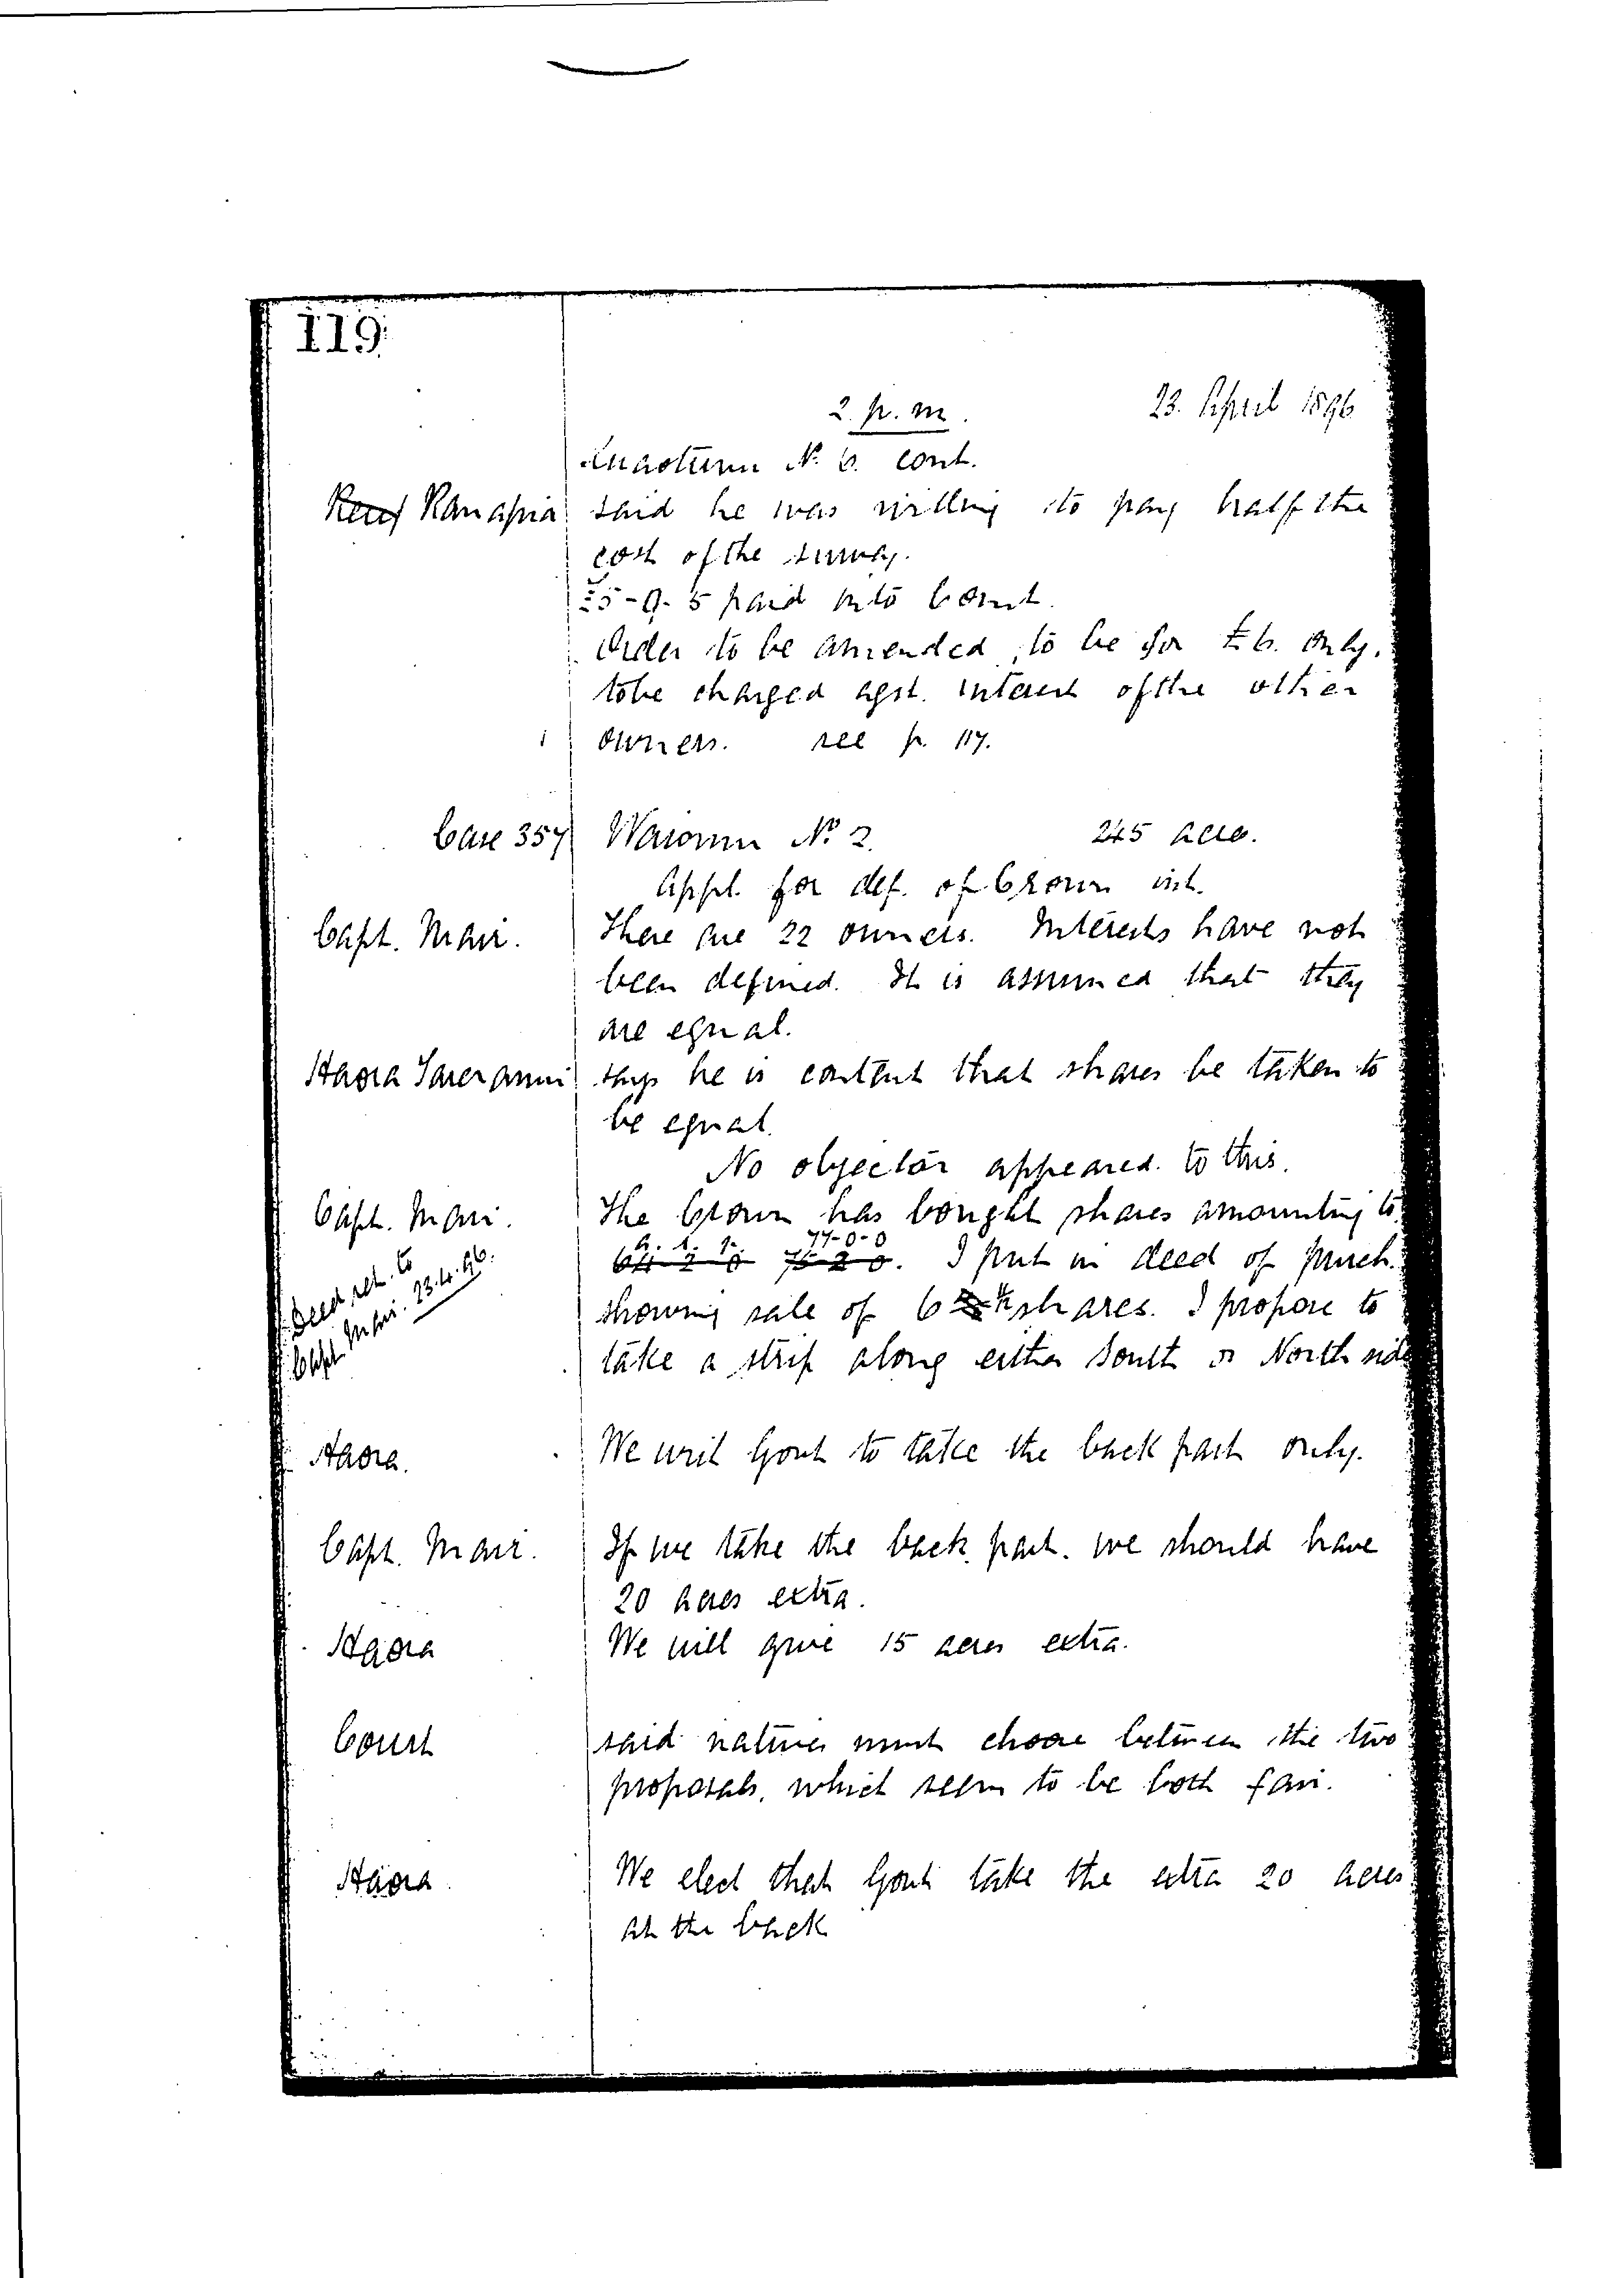 119
2 p.m. 23. April 1896
No. 6. cont.
Ranapia said he was willing to pay half the
cost of the survey.
5 paid into Court.
Order to be amended, to be for £6. only.
to be charged agst. interest of the other
owners. see p. 117.
Case 357 Waioruru No. 2. 245 acres.
Appl. for def. of Crown int.
Capt. Mair. There are 22 owners. Interests have not
been defined. It is assumed that they
are equal.
Haora says he is content that shares be taken to
be equal.
No objector appeared to this.
Capt. Mair. The Crown has bought shares amounting to
a. r. p. 77-0-0
I put in deed of purch.
Deed ret. to
Capt. Mair. 23.4.96.
showing sale of 6 shares. I propose to
take a strip along either South or North side
Haora. We wish Govt to take the back part only.
Capt. Mair. If we take the back part. we should have
20 acres extra.
Haora We will give 15 acres extra.
Court said natives must choose between the two
proposals, which seem to be both fair.
Haora We elect that Govt take the extra 20 acres
at the back